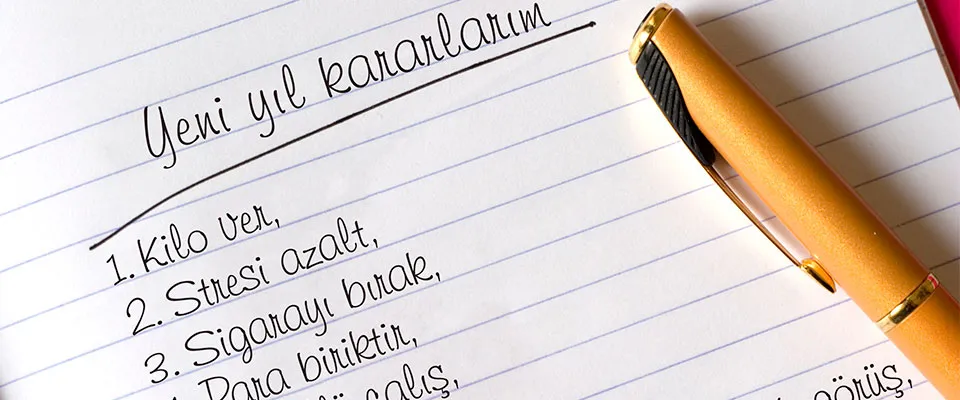 Yeni yıl kararlarım
1. Kilo ver,
2. Stresi azalt,
3. Sigarayı bırak,
Para biriktir,
çalış,
görüş,